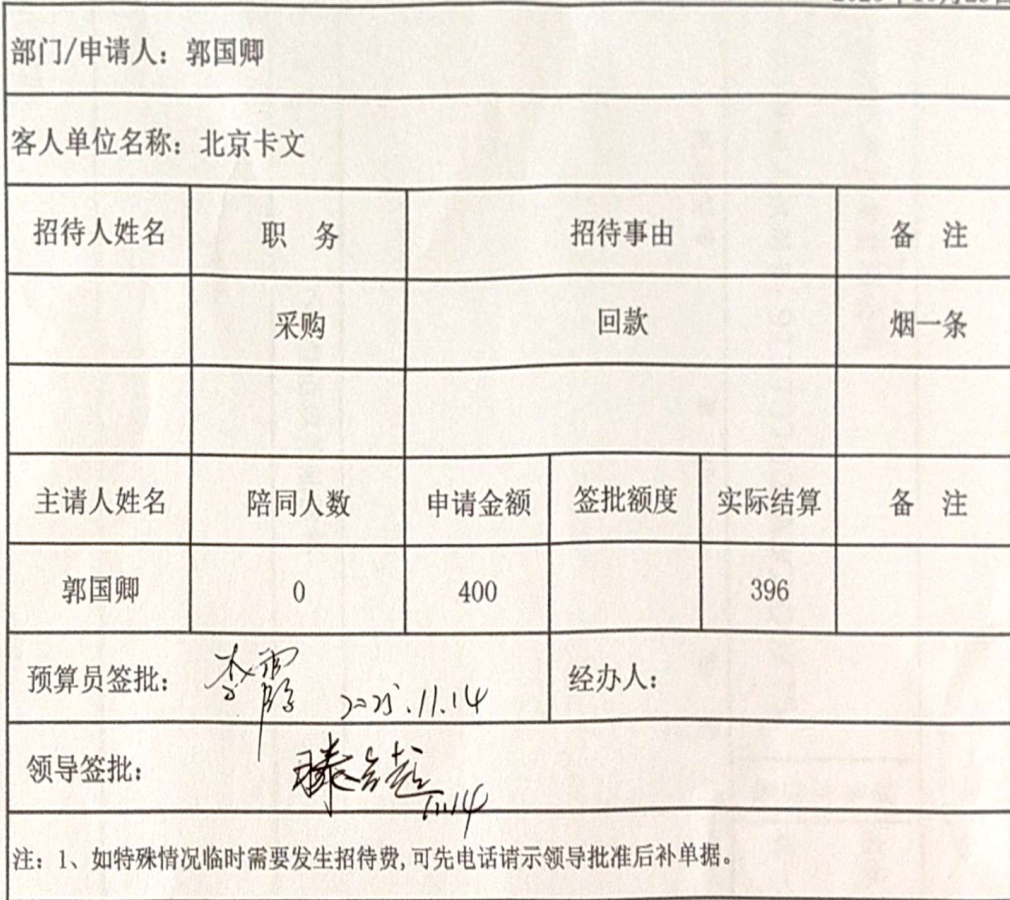 部门/申请人：郭国卿
客人单位名称：北京卡文
招待人姓名 职 务 招待事由 备 注
采购 回款 烟一条
主请人姓名 陪同人数 申请金额 签批额度 实际结算 备 注
郭国卿 0 400 396
预算员签批：李霞 2025.11.14 经办人：
领导签批： 11.14
注：1、如特殊情况临时需要发生招待费,可先电话请示领导批准后补单据。